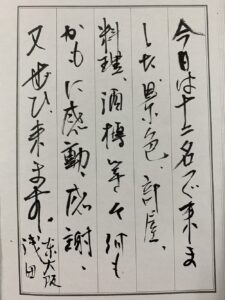 今日は十二名で来ま
した景色、部屋、
料理、酒樽等々何も
かもに感動、感謝、
又ぜひ来ます。
東大阪
浅田